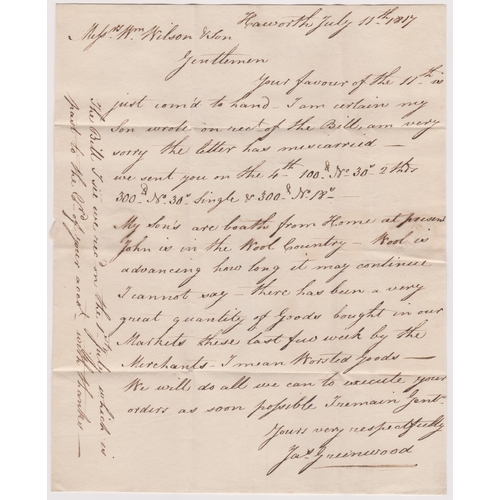 Haworth July 11th 1817
Messrs Wm Wilson & Son
Gentlemen
Your favour of the 11th is
just com'd to hand - I am certain my
Son wrote on rect of the Bill, am very
sorry the letter has miscarried -
we sent you on the 4th 100d No 30s 2 thds
300d No 30s Single & 300d No 18s -
My Son's are boath from Home at present
John is in the Wool Country - Wool is
advancing how long it may continue
I cannot say - there has been a very
great quantity of Goods bought in our
Markets these last few week by the
Merchants - I mean Worsted Goods -
We will do all we can to execute your
orders as soon possible I remain Gent-
Yours very respectfully
Jas Greenwood
The Bill I see we recd on the 1st July which is
past to the Cr of your acct with thanks -